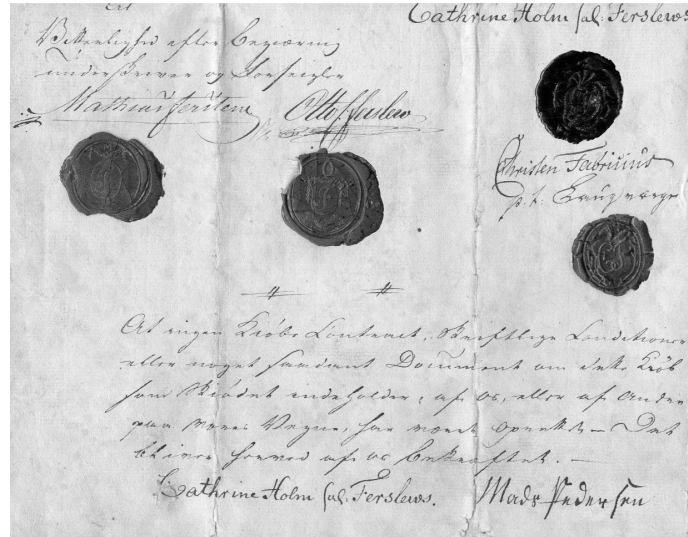 Til
Cathrine Holm sal: Ferslews
Vitterlighed efter Begiæring
underskriver og Forseigler
Mathias Otto Ferslew
Christen Fabritius
p. t. Laugværge
At ingen Kiøbe Contract, Skriftlige Conditioner
eller noget saadant Document om dette Kiøb
som Skiødet indeholder, af os, eller af andre
paa vores Vegne, har været oprettet – Det
bliver herved af os bekræftet. –
Cathrine Holm sal: Ferslews. Mads Pedersen